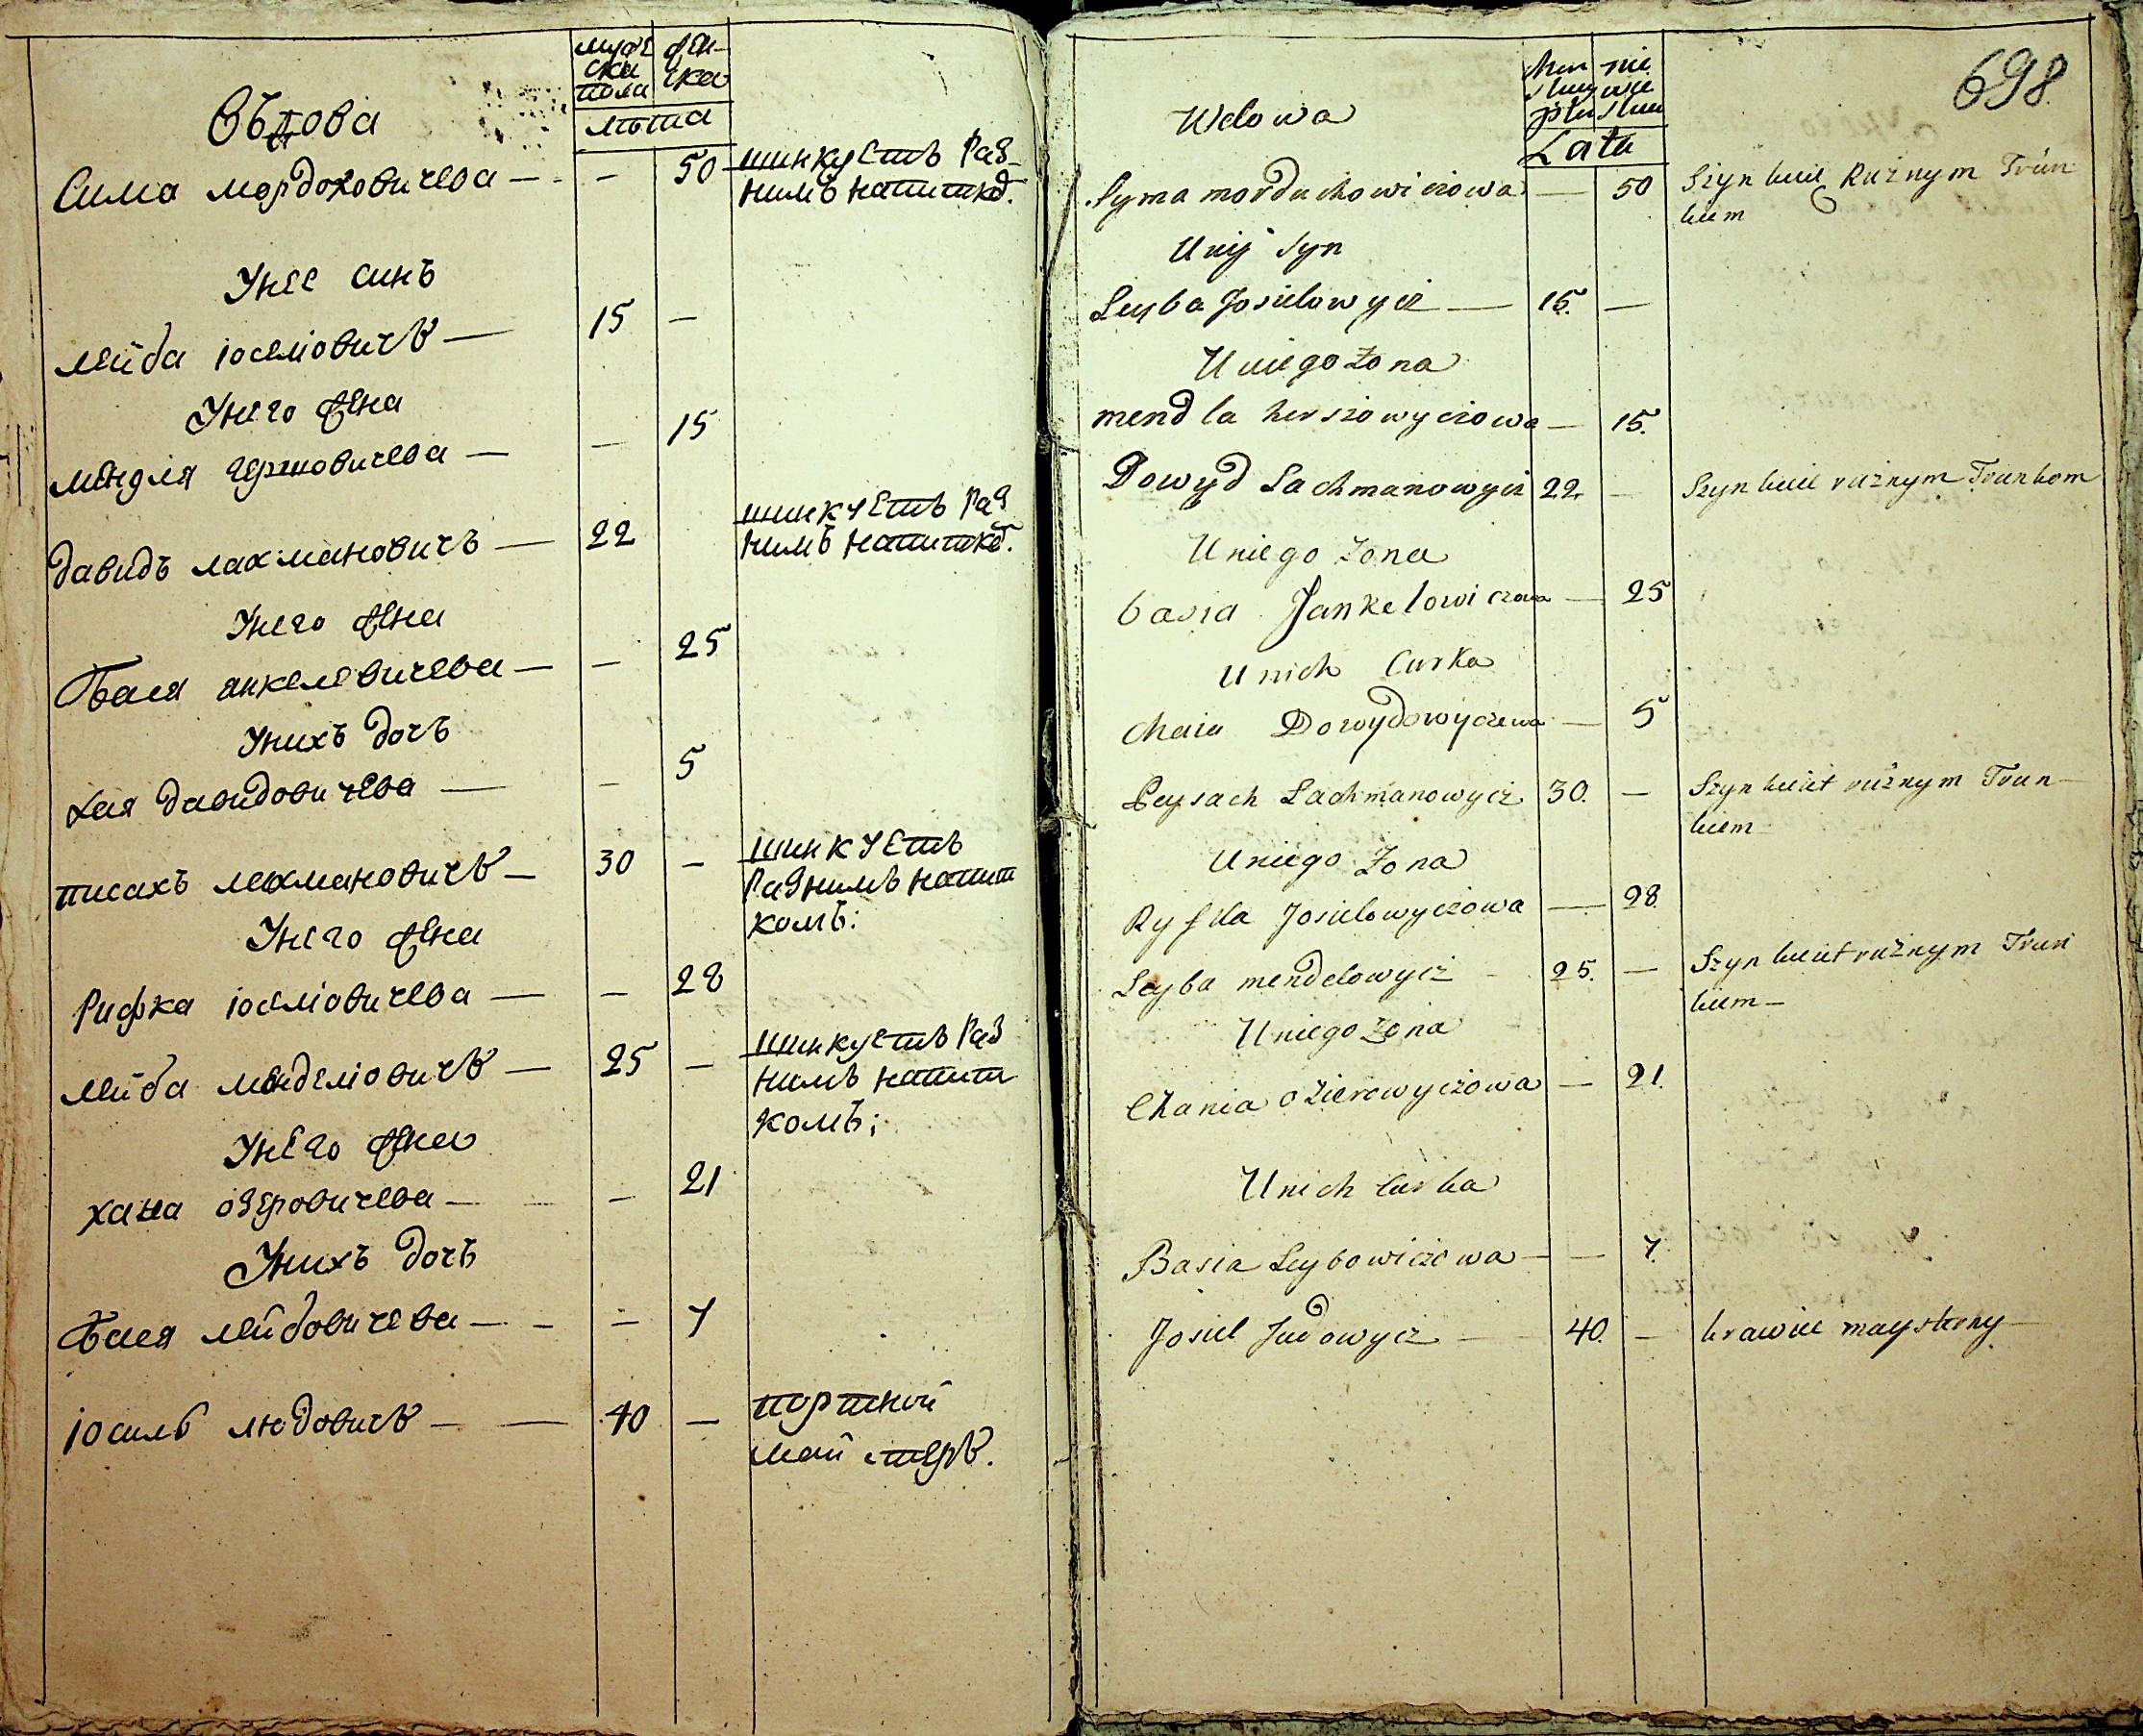 мужеска пола
женска
лѣта
Вѣдова
Сима мордоховичева — — 50 шинкуетъ Раз-
нимъ напитко.
Унее синъ
лейба іосьліовичъ — 15 —
Унего жена
мендля гершовичева — — 15
давидъ лахмановичъ — 22 шинкуетъ Раз
нимъ напитко.
Унего жена
Бася янкелевичева — — 25
Унихъ дочъ
хая давидовичева — — 5
писахъ лахмановичъ — 30 — шинкуетъ
Разнимъ напит
комъ:
Унего жена
Рифка іосьліовичева — — 28
лейба мендиліовичъ — 25 — шинкуетъ Раз
нимъ напит
комъ;
Унего жена
хана озеровичева — — 21
Унихъ дочъ
Бася лейбовичева — — 7
іосиль людовичъ — — 40 — портной
май стеръ.
698.
Lata
Wdowa
Syma morduchowiczowa — 50 Szynkuie Rużnym Trun
kiem
Uniy Syn
Leyba Josielowycz — 15. —
Uniego Żona
mendla herszowyczowa — 15.
Dowyd Lachmanowycz 22. — Szynkuie rużnym Trunkom
Uniego Żona
basia Jankelowiczowa — 25
Unich Curka
Chaia Dowydowyczewa — 5
Peysach Lachmanowycz 30. — Szynkuiet rużnym Trun—
kiem—
Uniego Żona
Ryfka Josielowyczowa — 28.
Leyba mendelowycz 25. — Szynkuiet rużnym Trun
kiem—
Uniego Żona
Chania ozierowyczowa — 21.
Unich Curka
Basia Leybowiczowa — — 7.
Josiel Judowycz — 40. — krawiec maysterny—